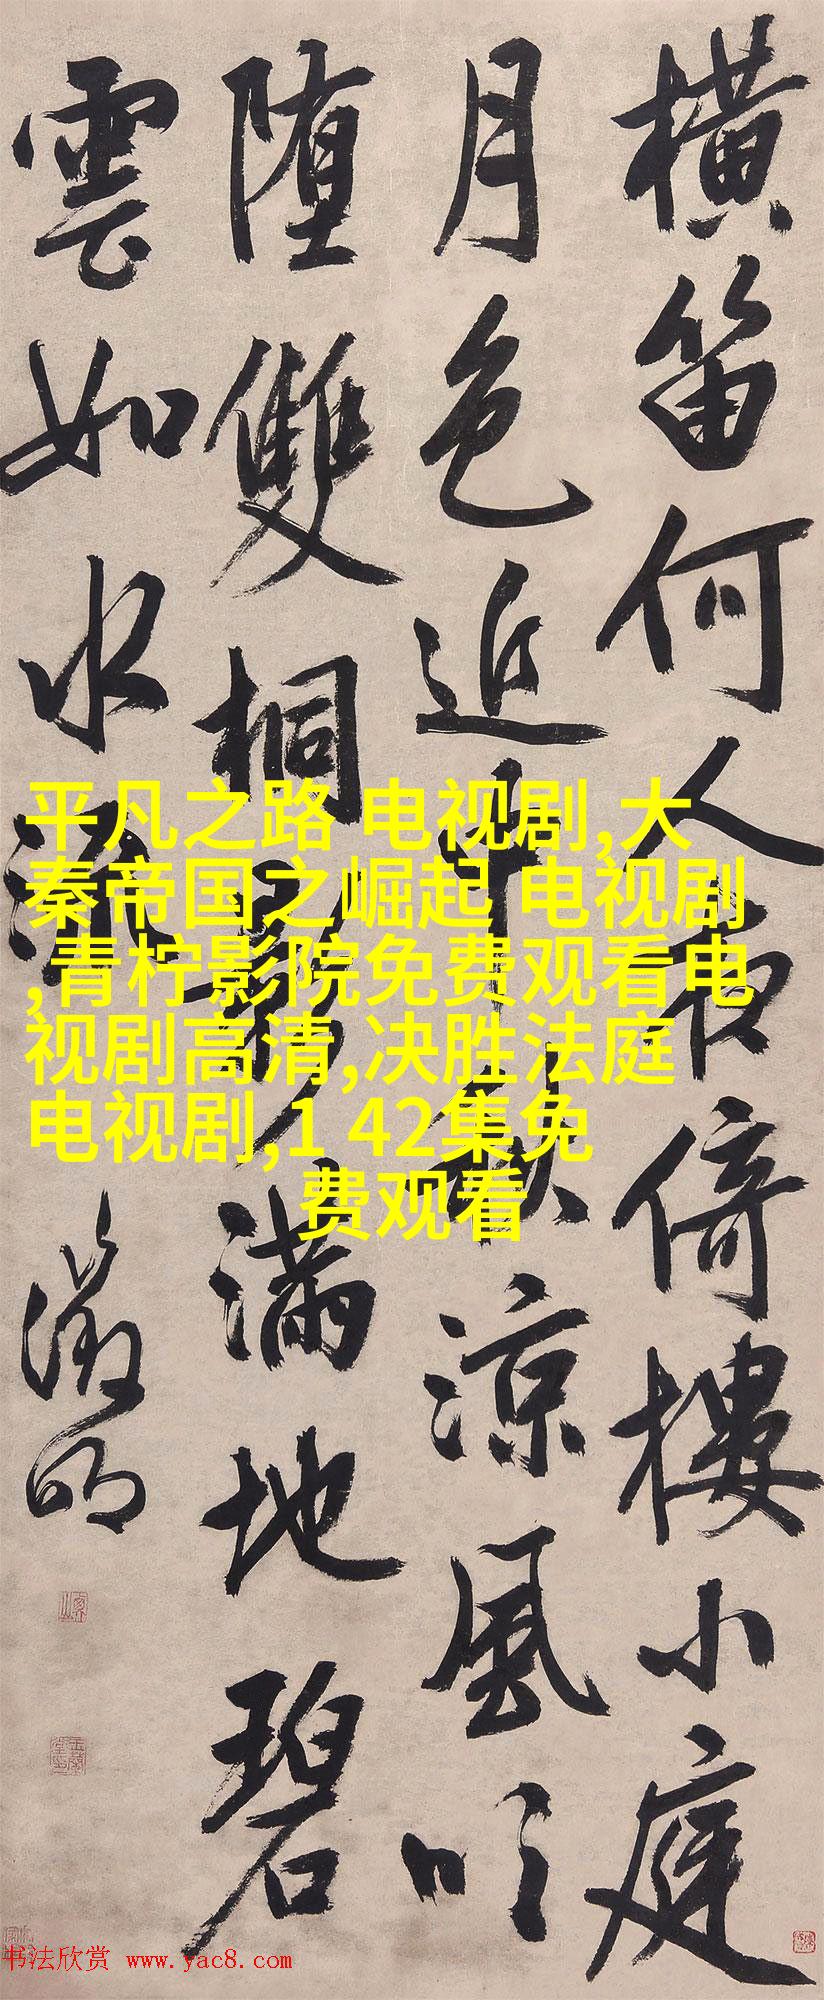 橫笛何人夜倚樓小庭
月色近中秋涼風吹
堕雙桐影滿地碧
雲如水流
徵明
平凡之路 电视剧,大
秦帝国之崛起 电视剧
,青柠影院免费观看电
视剧高清,决胜法庭
电视剧,1 42集免
费观看
书法欣赏 www.yac8.com